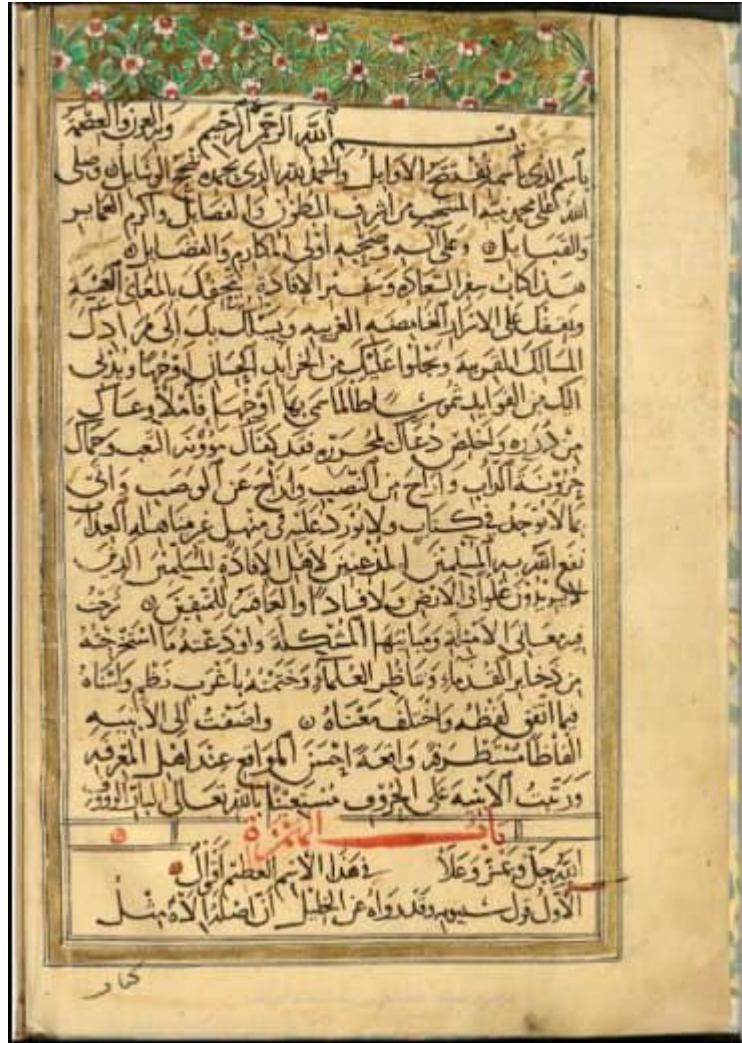 بسم الله الرحمن الرحيم وبه العون والعصمة
باسم الذي باسمه تفتتح الاوايل والحمد لله الذي بحمده تنجح الوسايل وصلى
الله على محمد نبيه المنتخب من اشرف البطون والفصايل واكرم العماير
والقبايل وعلى اله وصحبه اولي المكارم والفضايل
هذا كتاب سفر السعادة وسفير الافادة يتحفك بالمعاني العجيبة
ويقفك على الاسرار الغامضة الغريبة ويسلك بك الى مرادك
المسالك القريبة ويجلوا عليك من الخرايد الحسان اوجها ويدني
اليك من الفوايد شموسا طالما سمى بها اوجها فاملأ وعاك
من درره واخلص دعاك لمحرره فقد كفاك مؤونة التعب وحماك
خزونة الداب واراح من النصب وازاح عن الوصب واتى
بما لا يوجد في كتاب ولا تورد عليه في منهل غير مناهله العذاب
نفع الله به المسلمين المذعنين لاهل الافادة المسلمين الذين
لا يريدون علوا في الارض ولا فسادا والعاقبة للمتقين شرحت
فيه معاني الامثلة ومبانيها المشكلة واودعته ما استخرجته
من ذخاير القدماء وتناظر العلماء وختمته باغرب نظم واسناه
فيما اتفق لفظه واختلف معناه واضفت الى الابنية
الفاظا مستطرفة واقعة احسن المواقع عند اهل المعرفة
ورتبت الابنية على الحروف مستعينا بالله تعالى البار الرؤوف
باب الهمزة
الله جل وعز وعلا في هذا الاسم العظيم اقوال
الاول قول سيبويه وقد رواه عن الخليل ان اصله الاه مثل